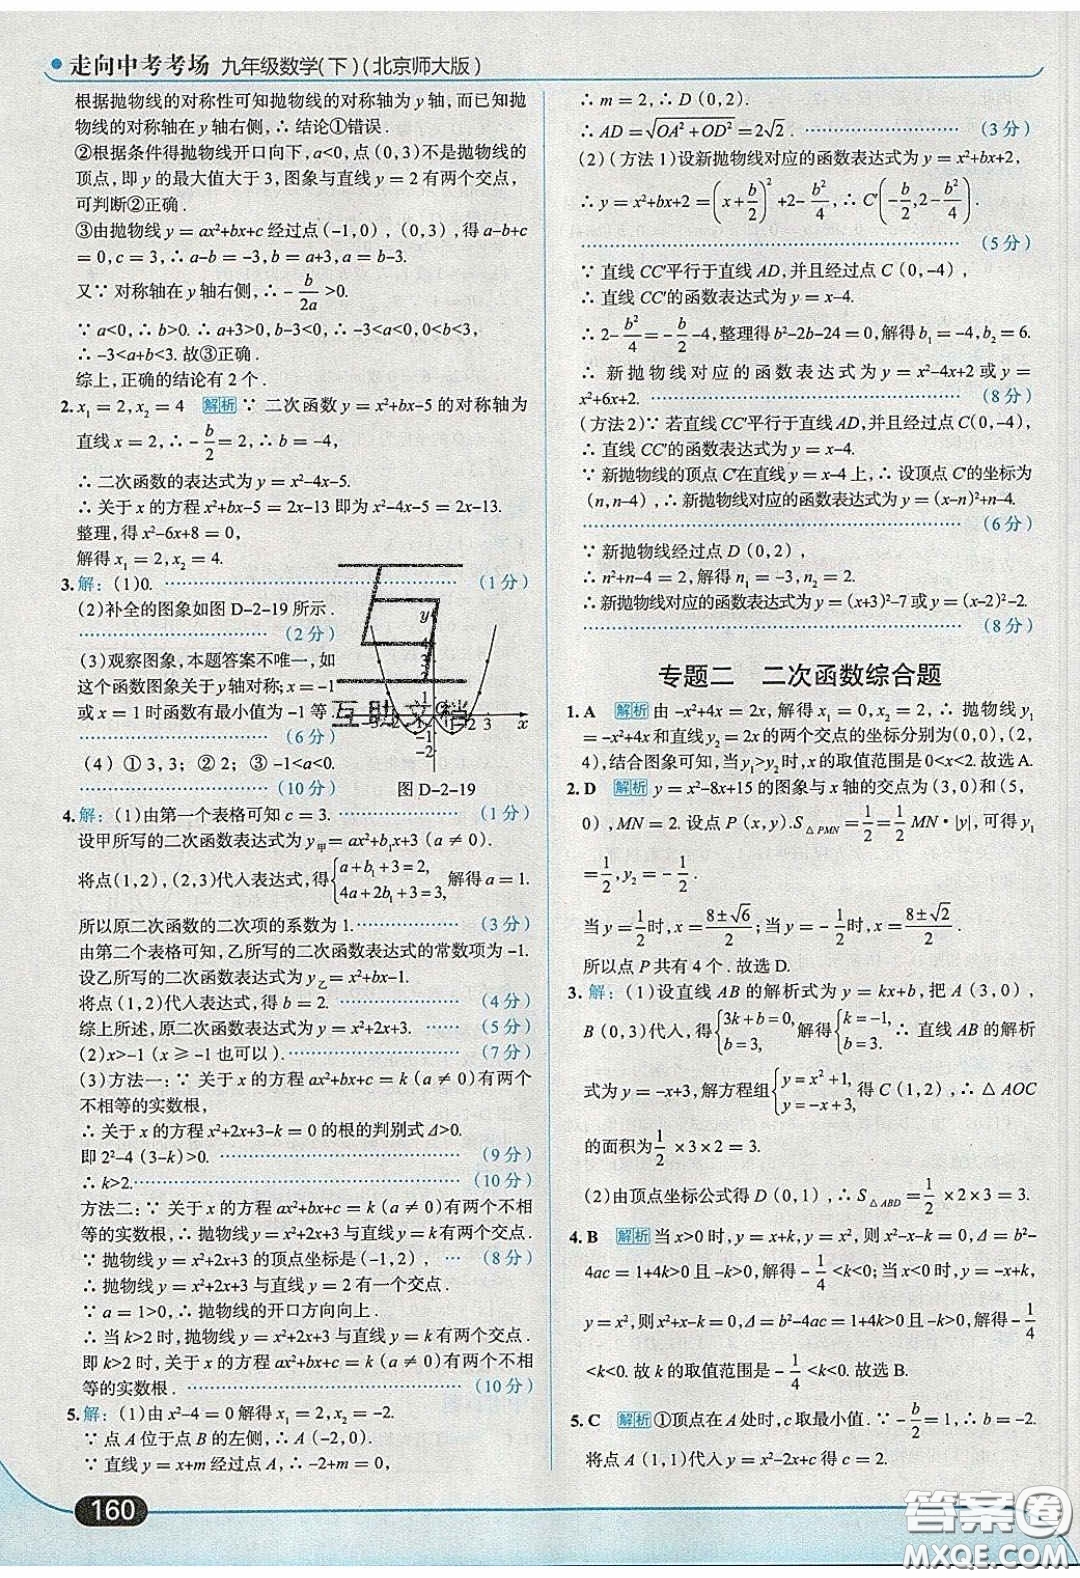 走向中考考场 九年级数学(下)(北京师大版)
根据抛物线的对称性可知抛物线的对称轴为y轴,而已知抛
物线的对称轴在y轴右侧,∴ 结论①错误.
②根据条件得抛物线开口向下,a<0,点(0,3)不是抛物线的
顶点,即y的最大值大于3,图象与直线y=2有两个交点,
可判断②正确.
③由抛物线y=ax²+bx+c经过点(-1,0),(0,3),得a-b+c
=0,c=3,∴a-b=-3,b=a+3,a=b-3.
又∵对称轴在y轴右侧,∴-b/2a>0.
∵a<0,∴b>0.∴a+3>0,b-3<0,∴-3<a<0,0<b<3,
∴-3<a+b<3.故③正确.
综上,正确的结论有2个.
2.x₁=2,x₂=4 解析 ∵ 二次函数y=x²+bx-5的对称轴为
直线x=2,∴-b/2=2,∴b=-4,
∴二次函数的表达式为y=x²-4x-5.
∴关于x的方程x²+bx-5=2x-13即为x²-4x-5=2x-13.
整理,得x²-6x+8=0,
解得x₁=2,x₂=4.
3.解:(1)0. (1分)
(2)补全的图象如图D-2-19所示.
(2分)
(3)观察图象,本题答案不唯一,如
这个函数图象关于y轴对称;x=-1
或x=1时函数有最小值为-1等.
(6分)
(4)①3,3;②2;③-1<a<0.
(10分)
图D-2-19
4.解:(1)由第一个表格可知c=3. (1分)
设甲所写的二次函数表达式为y甲=ax²+b₁x+3(a≠0).
将点(1,2),(2,3)代入表达式,得{a+b₁+3=2, 4a+2b₁+3=3, 解得a=1.
所以原二次函数的二次项的系数为1. (3分)
由第二个表格可知,乙所写的二次函数表达式的常数项为-1.
设乙所写的二次函数表达式为y乙=x²+bx-1.
将点(1,2)代入表达式,得b=2. (4分)
综上所述,原二次函数表达式为y=x²+2x+3. (5分)
(2)x>-1(x≥-1也可以). (7分)
(3)方法一:∵ 关于x的方程ax²+bx+c=k(a≠0)有两个
不相等的实数根,
∴关于x的方程x²+2x+3-k=0的根的判别式Δ>0.
即2²-4(3-k)>0. (9分)
∴k>2. (10分)
方法二:∵ 关于x的方程ax²+bx+c=k(a≠0)有两个不相
等的实数根,∴抛物线y=x²+2x+3与直线y=k有两个交点.
∵抛物线y=x²+2x+3的顶点坐标是(-1,2), (8分)
∴抛物线y=x²+2x+3与直线y=2有一个交点.
∵a=1>0,∴抛物线的开口方向向上.
∴当k>2时,抛物线y=x²+2x+3与直线y=k有两个交点.
即k>2时,关于x的方程ax²+bx+c=k(a≠0)有两个不相
等的实数根. (10分)
5.解:(1)由x²-4=0解得x₁=2,x₂=-2.
∵点A位于点B的左侧,∴A(-2,0).
∵直线y=x+m经过点A,∴-2+m=0,
160
∴m=2,∴D(0,2).
∴AD=√(OA²+OD²)=2√2. (3分)
(2)(方法1)设新抛物线对应的函数表达式为y=x²+bx+2,
∴y=x²+bx+2=(x+b/2)²+2-b²/4,∴C′(-b/2,2-b²/4).
(5分)
∵直线CC′平行于直线AD,并且经过点C(0,-4),
∴直线CC′的函数表达式为y=x-4.
∴2-b²/4=-b/2-4,整理得b²-2b-24=0,解得b₁=-4,b₂=6.
∴新抛物线对应的函数表达式为y=x²-4x+2或y=
x²+6x+2. (8分)
(方法2)∵若直线CC′平行于直线AD,并且经过点C(0,-4),
∴直线CC′的函数表达式为y=x-4.
∵新抛物线的顶点C′在直线y=x-4上,∴设顶点C′的坐标为
(n,n-4),∴新抛物线对应的函数表达式为y=(x-n)²+n-4.
(6分)
∵新抛物线经过点D(0,2),
∴n²+n-4=2,解得n₁=-3,n₂=2.
∴新抛物线对应的函数表达式为y=(x+3)²-7或y=(x-2)²-2.
(8分)
专题二 二次函数综合题
1.A 解析 由-x²+4x=2x,解得x₁=0,x₂=2,∴抛物线y₁
=-x²+4x和直线y₂=2x的两个交点的坐标分别为(0,0),(2,
4),结合图象可知,当y₁>y₂时,x的取值范围是0<x<2.故选A.
2.D 解析 y=x²-8x+15的图象与x轴的交点为(3,0)和(5,
0),MN=2.设点P(x,y).S△PMN=1/2=1/2MN·|y|,可得y₁
=1/2,y₂=-1/2.
当y=1/2时,x=(8±√6)/2;当y=-1/2时,x=(8±√2)/2.
所以点P共有4个.故选D.
3.解:(1)设直线AB的解析式为y=kx+b,把A(3,0),
B(0,3)代入,得{3k+b=0, b=3, 解得{k=-1, b=3, ∴直线AB的解析
式为y=-x+3,解方程组{y=x²+1, y=-x+3, 得C(1,2),∴△AOC
的面积为1/2×3×2=3.
(2)由顶点坐标公式得D(0,1),∴S△ABD=1/2×2×3=3.
4.B 解析 当x>0时,y=x+k,y=x²,则x²-x-k=0,Δ=b²-
4ac=1+4k>0且-k>0,解得-1/4<k<0;当x<0时,y=-x+k,
y=x²,则x²+x-k=0,Δ=b²-4ac=1+4k>0且-k>0,解得-1/4
<k<0.故k的取值范围是-1/4<k<0.故选B.
5.C 解析 ①顶点在A处时,c取最小值.∵-b/2=1,∴b=-2.
将点A(1,1)代入y=x²-2x+c,∴c=2.
互助文档
答案圈
MXQE.COM